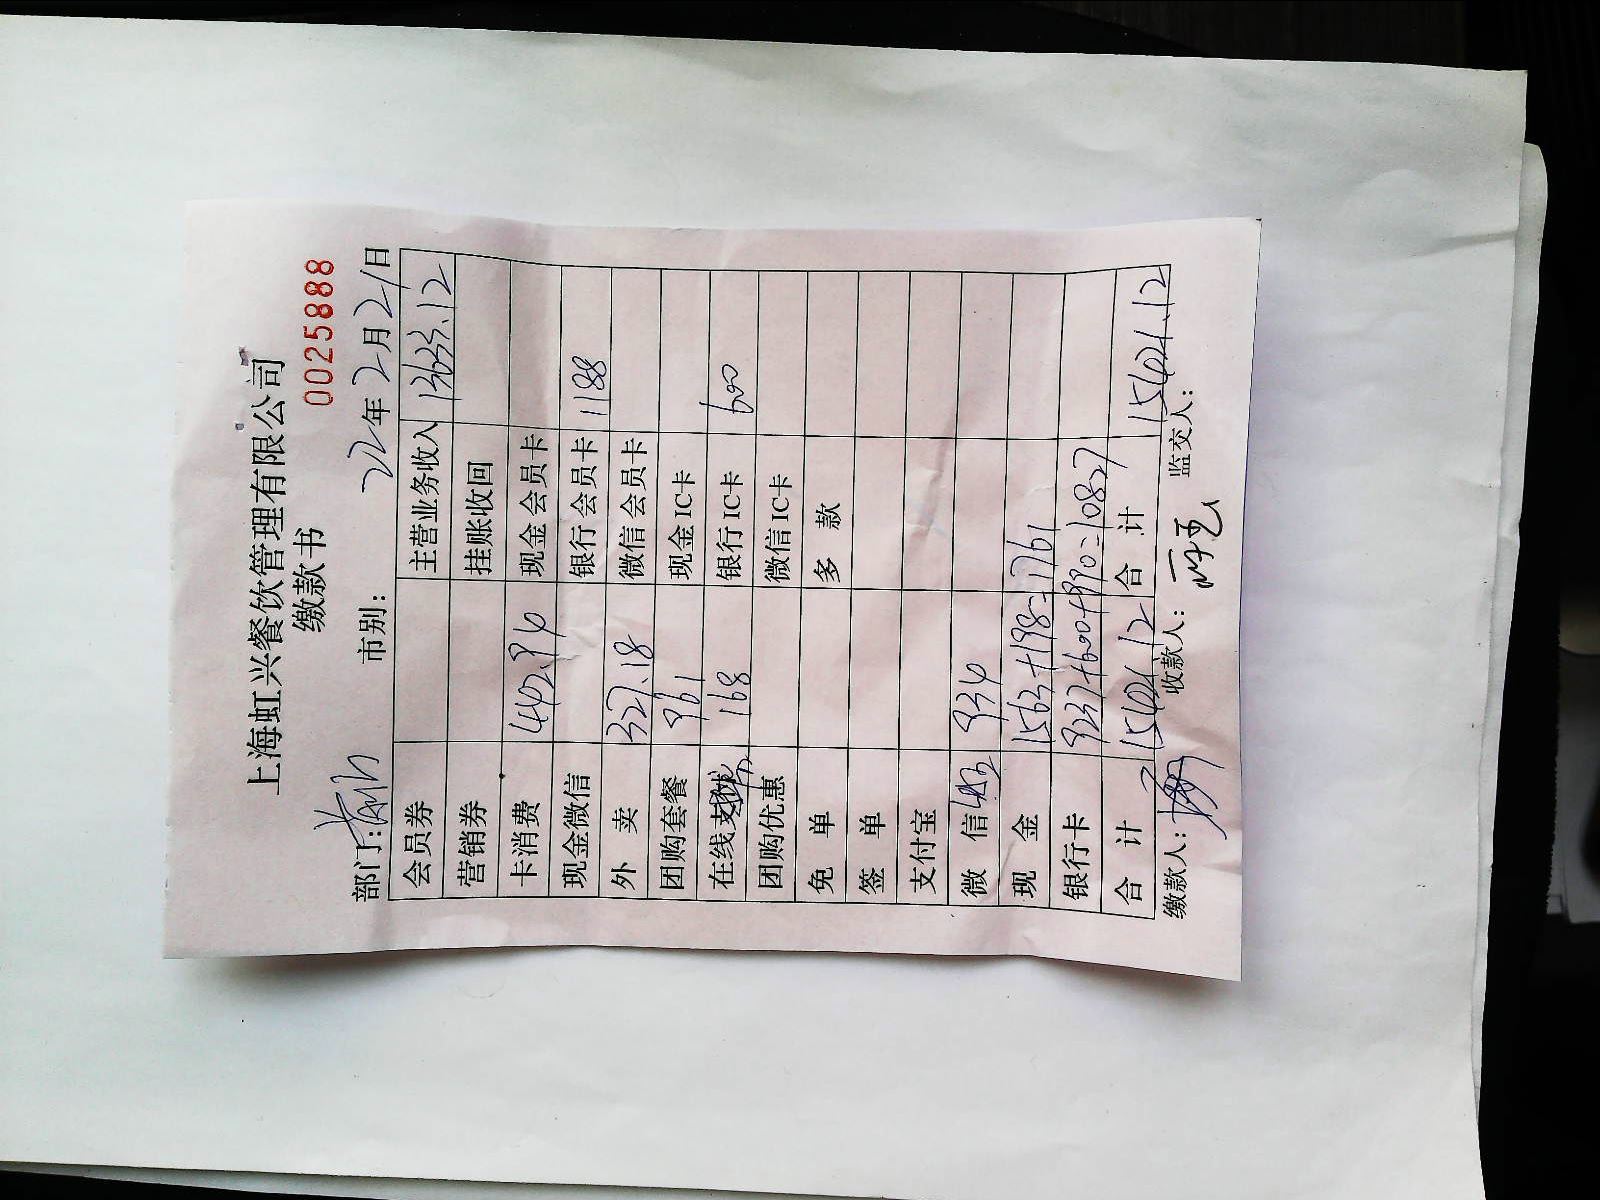 上海虹兴餐饮管理有限公司
缴款书
0025888
部门: 市别: 22年2月21日
会员券 主营业务收入 13633.12
营销券 挂账收回
卡消费 442.94 现金会员卡
现金微信 银行会员卡 1188
外 卖 327.18 微信会员卡
团购套餐 961 现金IC卡
在线 168 银行IC卡 600
团购优惠 微信IC卡
免 单 多 款
签 单
支付宝
微 信 934
现 金 1563+198=1761
银行卡 9237+600+990=10827
合 计 15421.12 合 计 15421.12
缴款人: 收款人: 监交人: